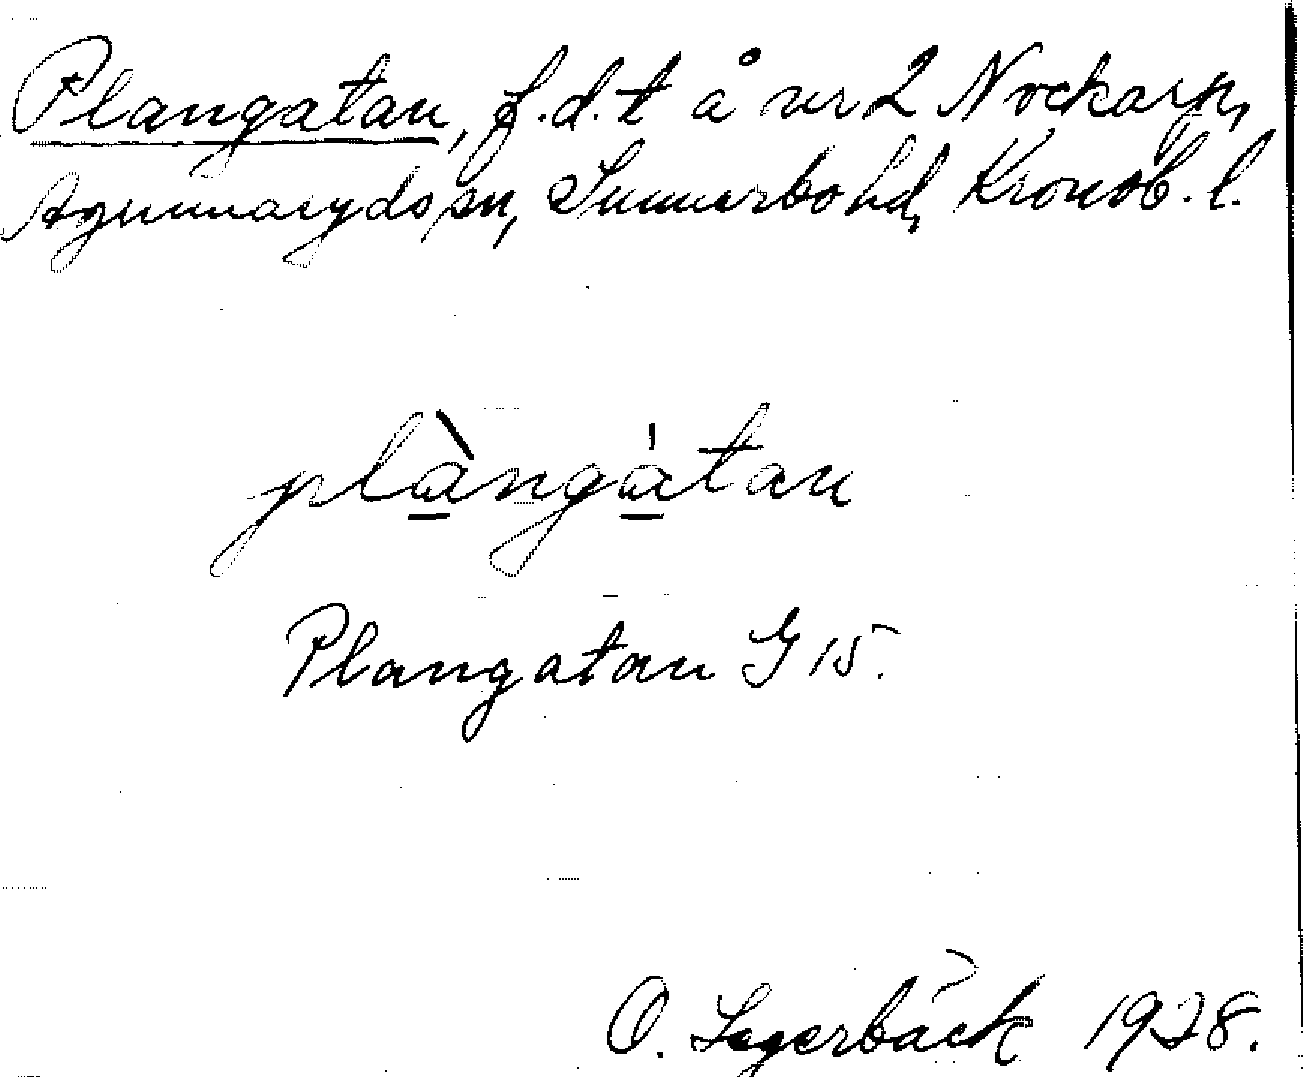 Plangatan, f.d.t å nr 2 Nockarp,
Agunnaryds sn, Sunnerbo hd, Kronob. l.
plàngátan
Plangatan G 15.
O. Segerbäck 1928.